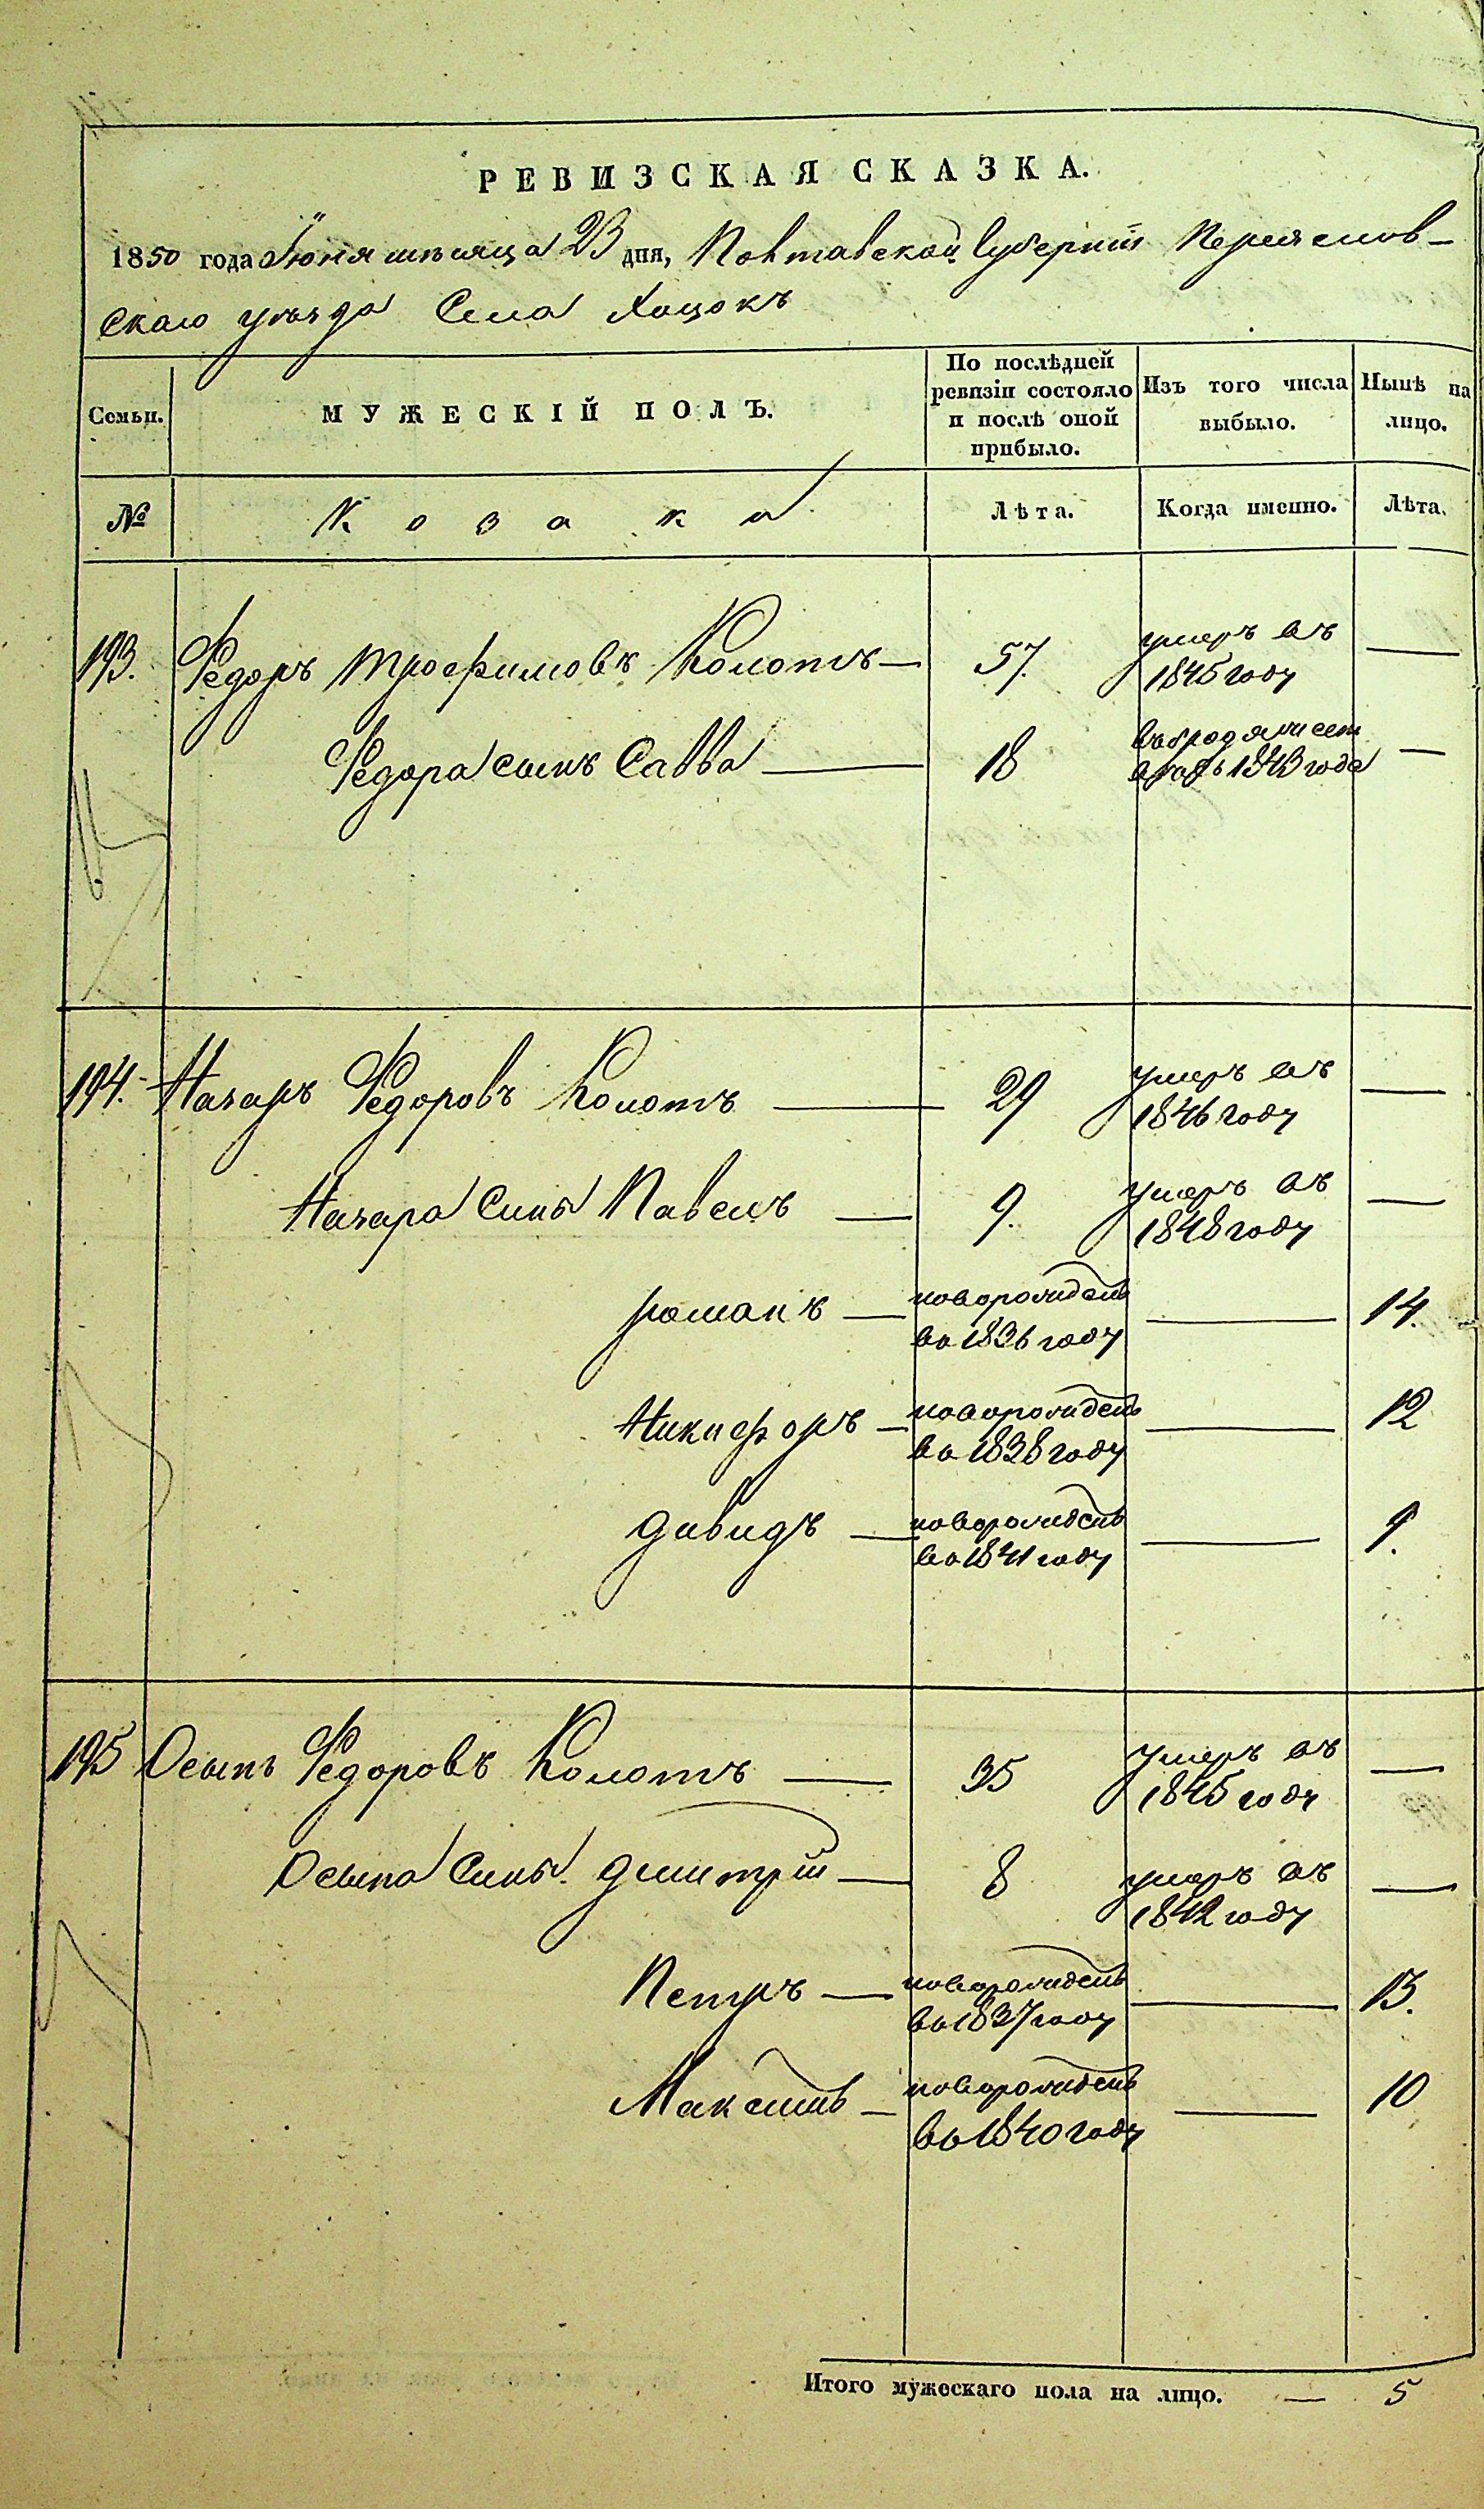 РЕВИЗСКАЯ СКАЗКА.
1850 года Іюня мѣсяца 23 дня, Полтавской Губерніи Переяслов-
скаго уѣзда Села Хоцокъ
Семьи.
МУЖЕСКІЙ ПОЛЪ.
По послѣдней ревизіи состояло и послѣ оной прибыло.
Изъ того числа выбыло.
Нынѣ на лицо.
№
Козаки
Лѣта.
Когда именно.
Лѣта.
193. Федоръ Трофимовъ Колотъ — 57. умеръ въ 1845 году —
Федора сынъ Савва — 18 въ 1843 года —
194. Назаръ Федоровъ Колотъ — 29 умеръ въ 1846 году —
Назара Сины Павелъ — 9. умеръ въ 1848 году —
романъ — новорожденъ во 1836 году — 14.
Никифоръ — новорожденъ во 1838 году — 12
давидъ — новорожденъ во 1841 году — 9.
195 Осыпъ Федоровъ Колотъ — 35 умеръ въ 1845 году —
Осыпа Сины. дмитрій — 8 умеръ въ 1842 году —
Петръ — новорожденъ во 1837 году — 13.
Максимъ — новорожденъ во 1840 году — 10
Итого мужескаго пола на лицо. — 5